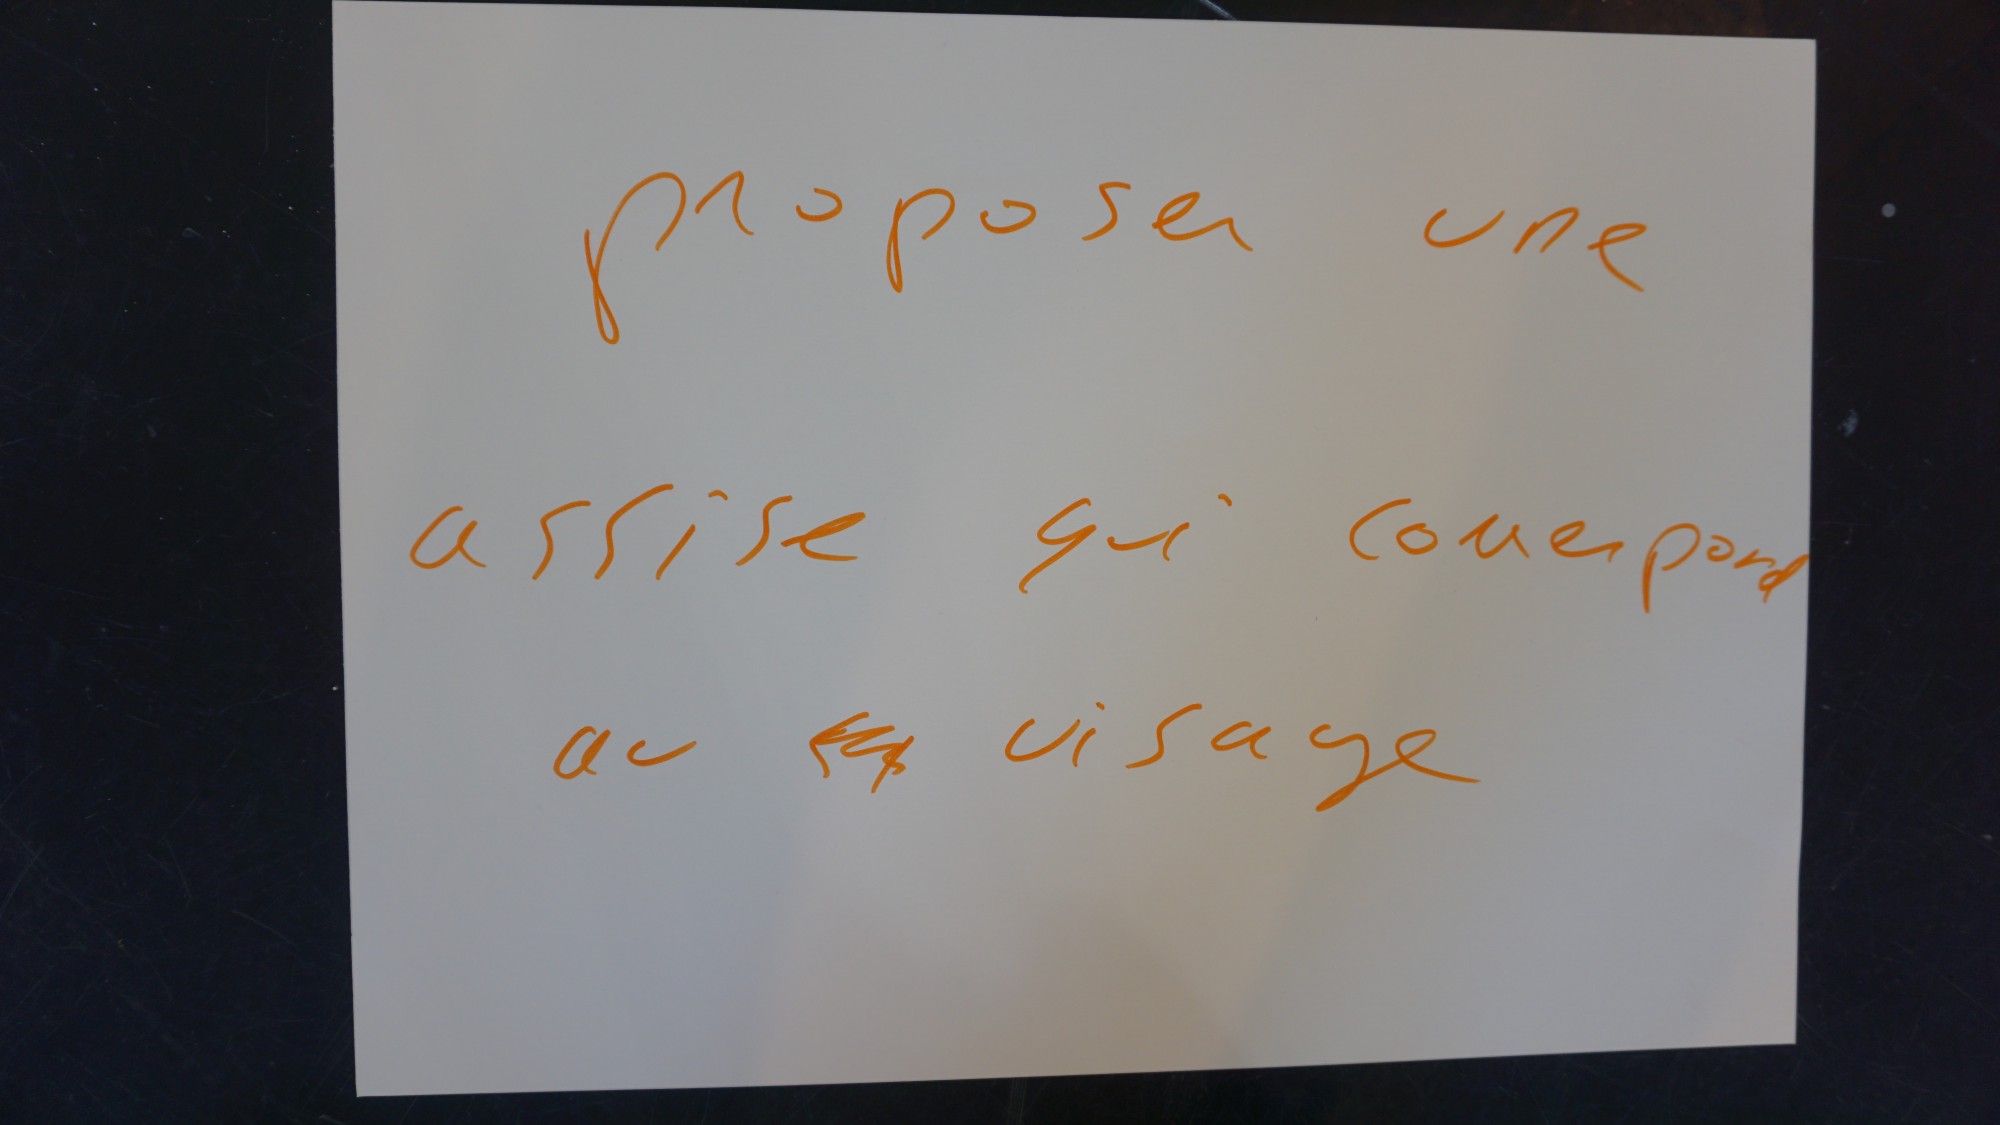 proposer une
assise qui correspond
au visage